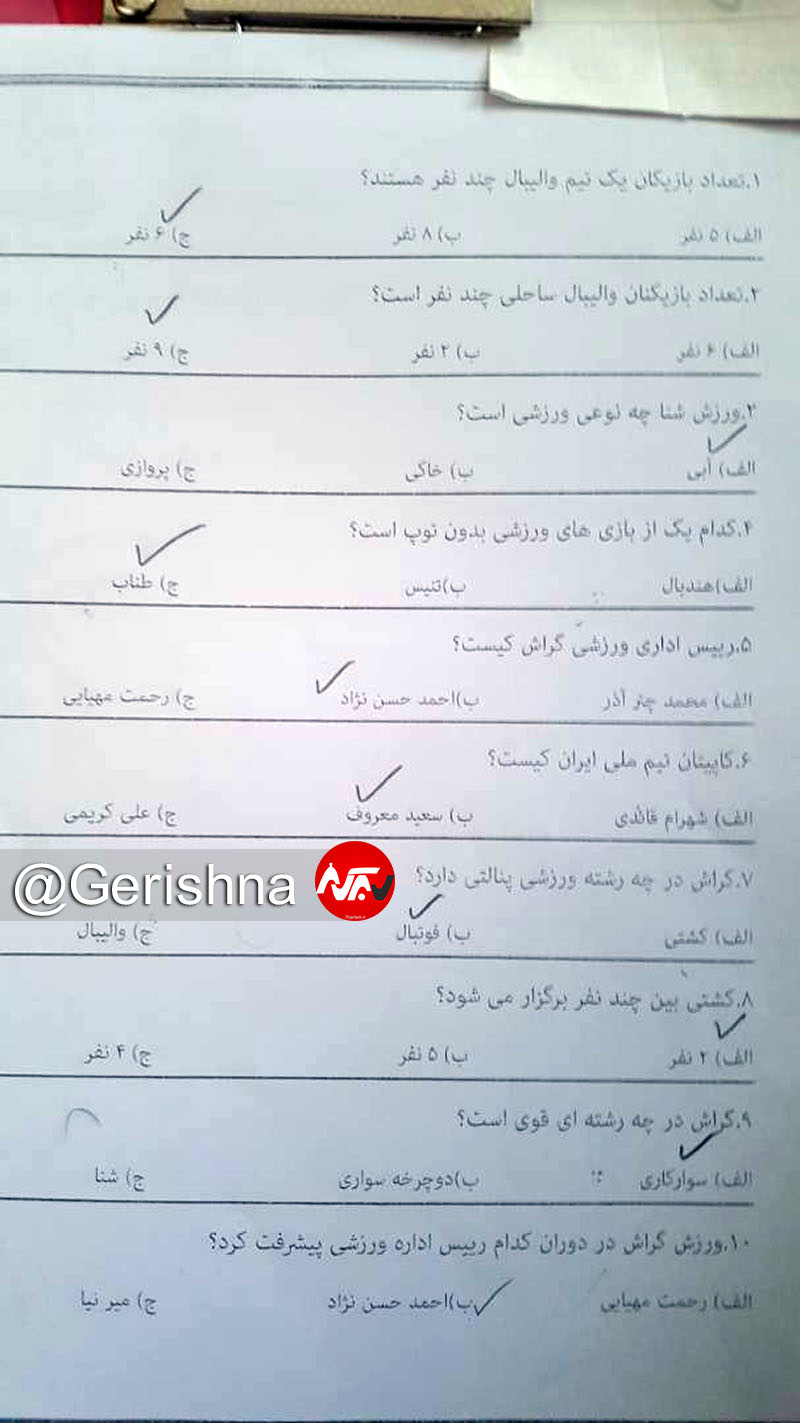 ۱.تعداد بازیکان یک تیم والیبال چند نفر هستند؟
الف) ۵ نفر ب) ۸ نفر ج) ۶ نفر
۲.تعداد بازیکنان والیبال ساحلی چند نفر است؟
الف) ۶ نفر ب) ۲ نفر ج) ۹ نفر
۳.ورزش شنا چه نوعی ورزشی است؟
الف) آبی ب) خاکی ج) پروازی
۴.کدام یک از بازی های ورزشی بدون توپ است؟
الف)هندبال ب)تنیس ج) طناب
۵.رییس اداری ورزشی گراش کیست؟
الف) محمد چتر آذر ب)احمد حسن نژاد ج) رحمت مهیایی
۶.کاپیتان تیم ملی ایران کیست؟
الف) شهرام قائدی ب) سعید معروف ج) علی کریمی
@Gerishna
۷.گراش در چه رشته ورزشی پنالتی دارد؟
الف) کشتی ب) فوتبال ج) والیبال
۸.کشتی بین چند نفر برگزار می شود؟
الف) ۲ نفر ب) ۵ نفر ج) ۴ نفر
۹.گراش در چه رشته ای قوی است؟
الف) سوارکاری ب)دوچرخه سواری ج) شنا
۱۰.ورزش گراش در دوران کدام رییس اداره ورزشی پیشرفت کرد؟
الف) رحمت مهیایی ب)احمد حسن نژاد ج) میر نیا